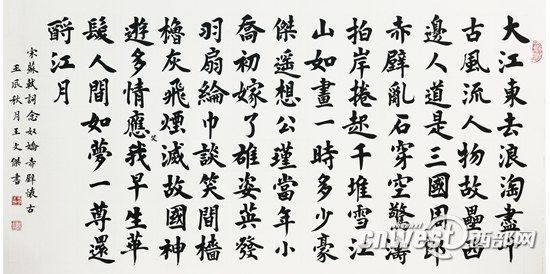 大江東去浪淘盡千
古風流人物故壘西
邊人道是三國周郎
赤壁亂石穿空驚濤
拍岸捲起千堆雪江
山如畫一時多少豪
傑遥想公瑾當年小
喬初嫁了雄姿英發
羽扇綸巾談笑間檣
櫓灰飛煙滅故國神
遊多情應笑我早生華
髮人間如夢一尊還
酹江月
宋蘇軾詞念奴嬌赤壁懷古
壬辰秋月王文傑書
cnwest西部网